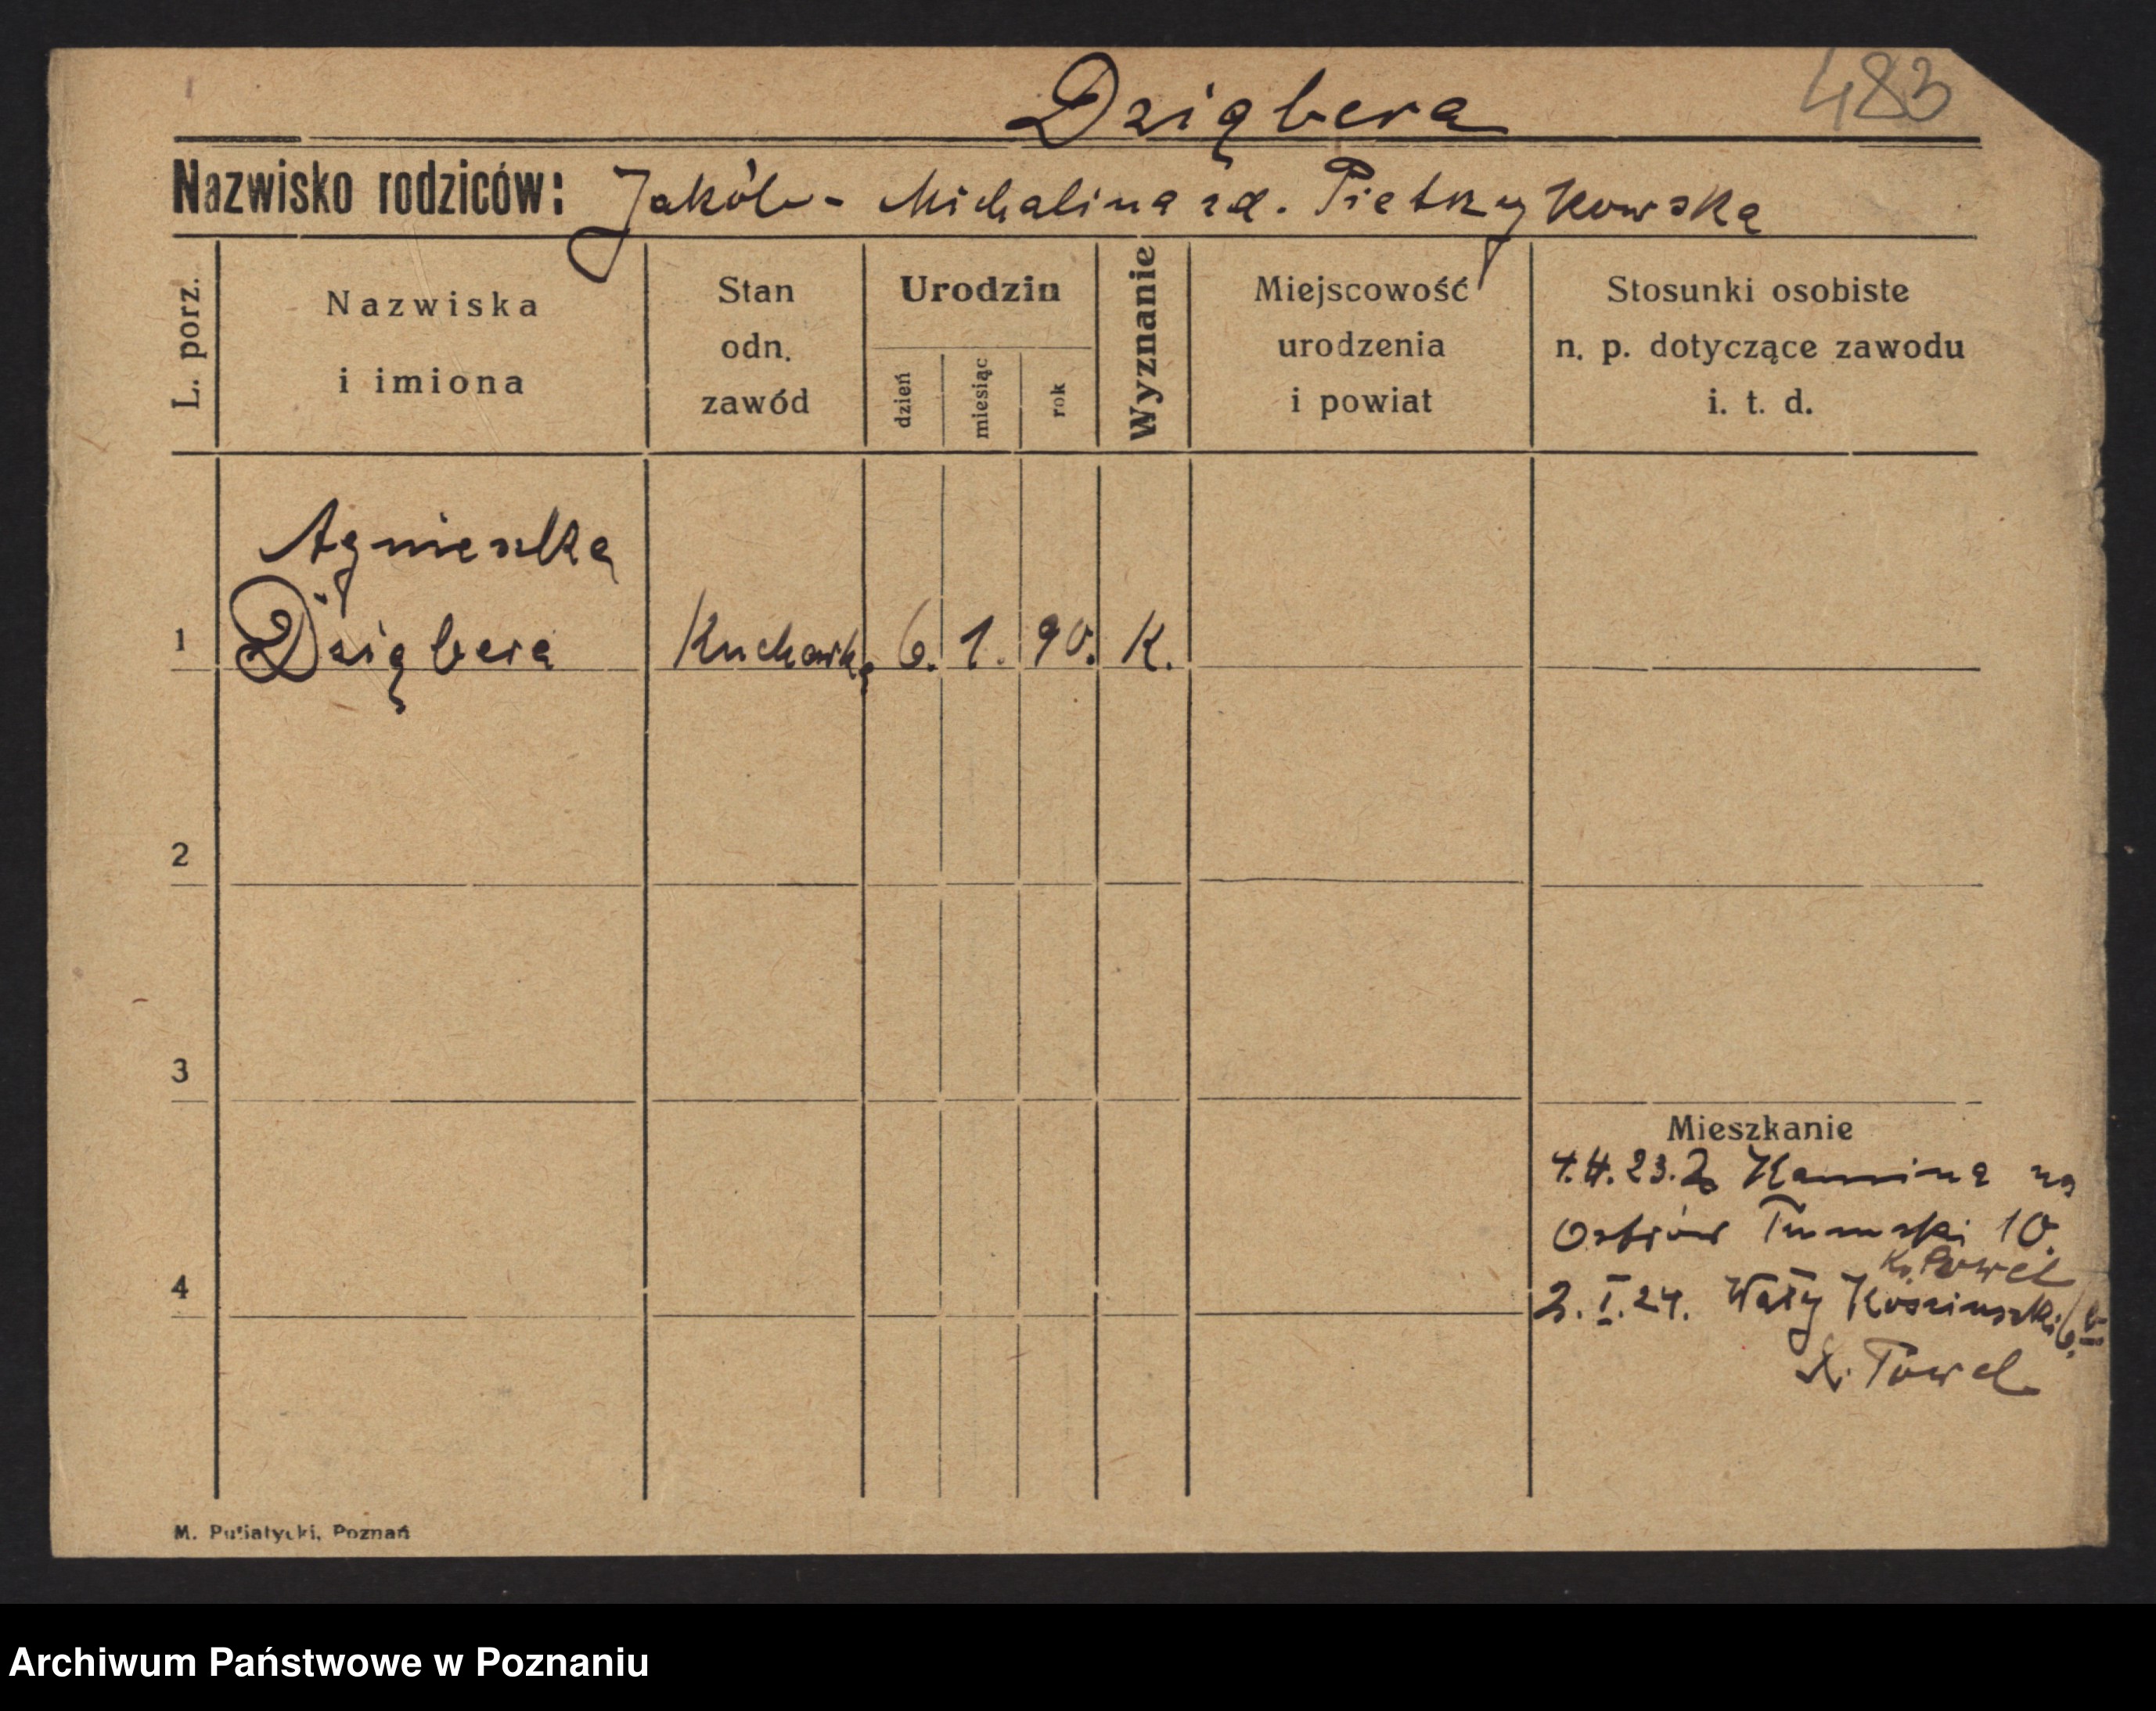 483
Dziąbera
Nazwisko rodziców: Jakób - Michalina zd. Pietrzykowska
L. porz.
Nazwiska
i imiona
Stan
odn.
zawód
Urodzin
dzień
miesiąc
rok
Wyznanie
Miejscowość
urodzenia
i powiat
Stosunki osobiste
n. p. dotyczące zawodu
i. t. d.
Agnieszka
1 Dziąbera Kucharka 6. 1. 90. K.
2
3
4
Mieszkanie
4.4.23. Z Kamina na
Ostrów Tumski 10.
2.I.24. Wały Kościuszki 6.
M. Putiatycki, Poznań
Archiwum Państwowe w Poznaniu